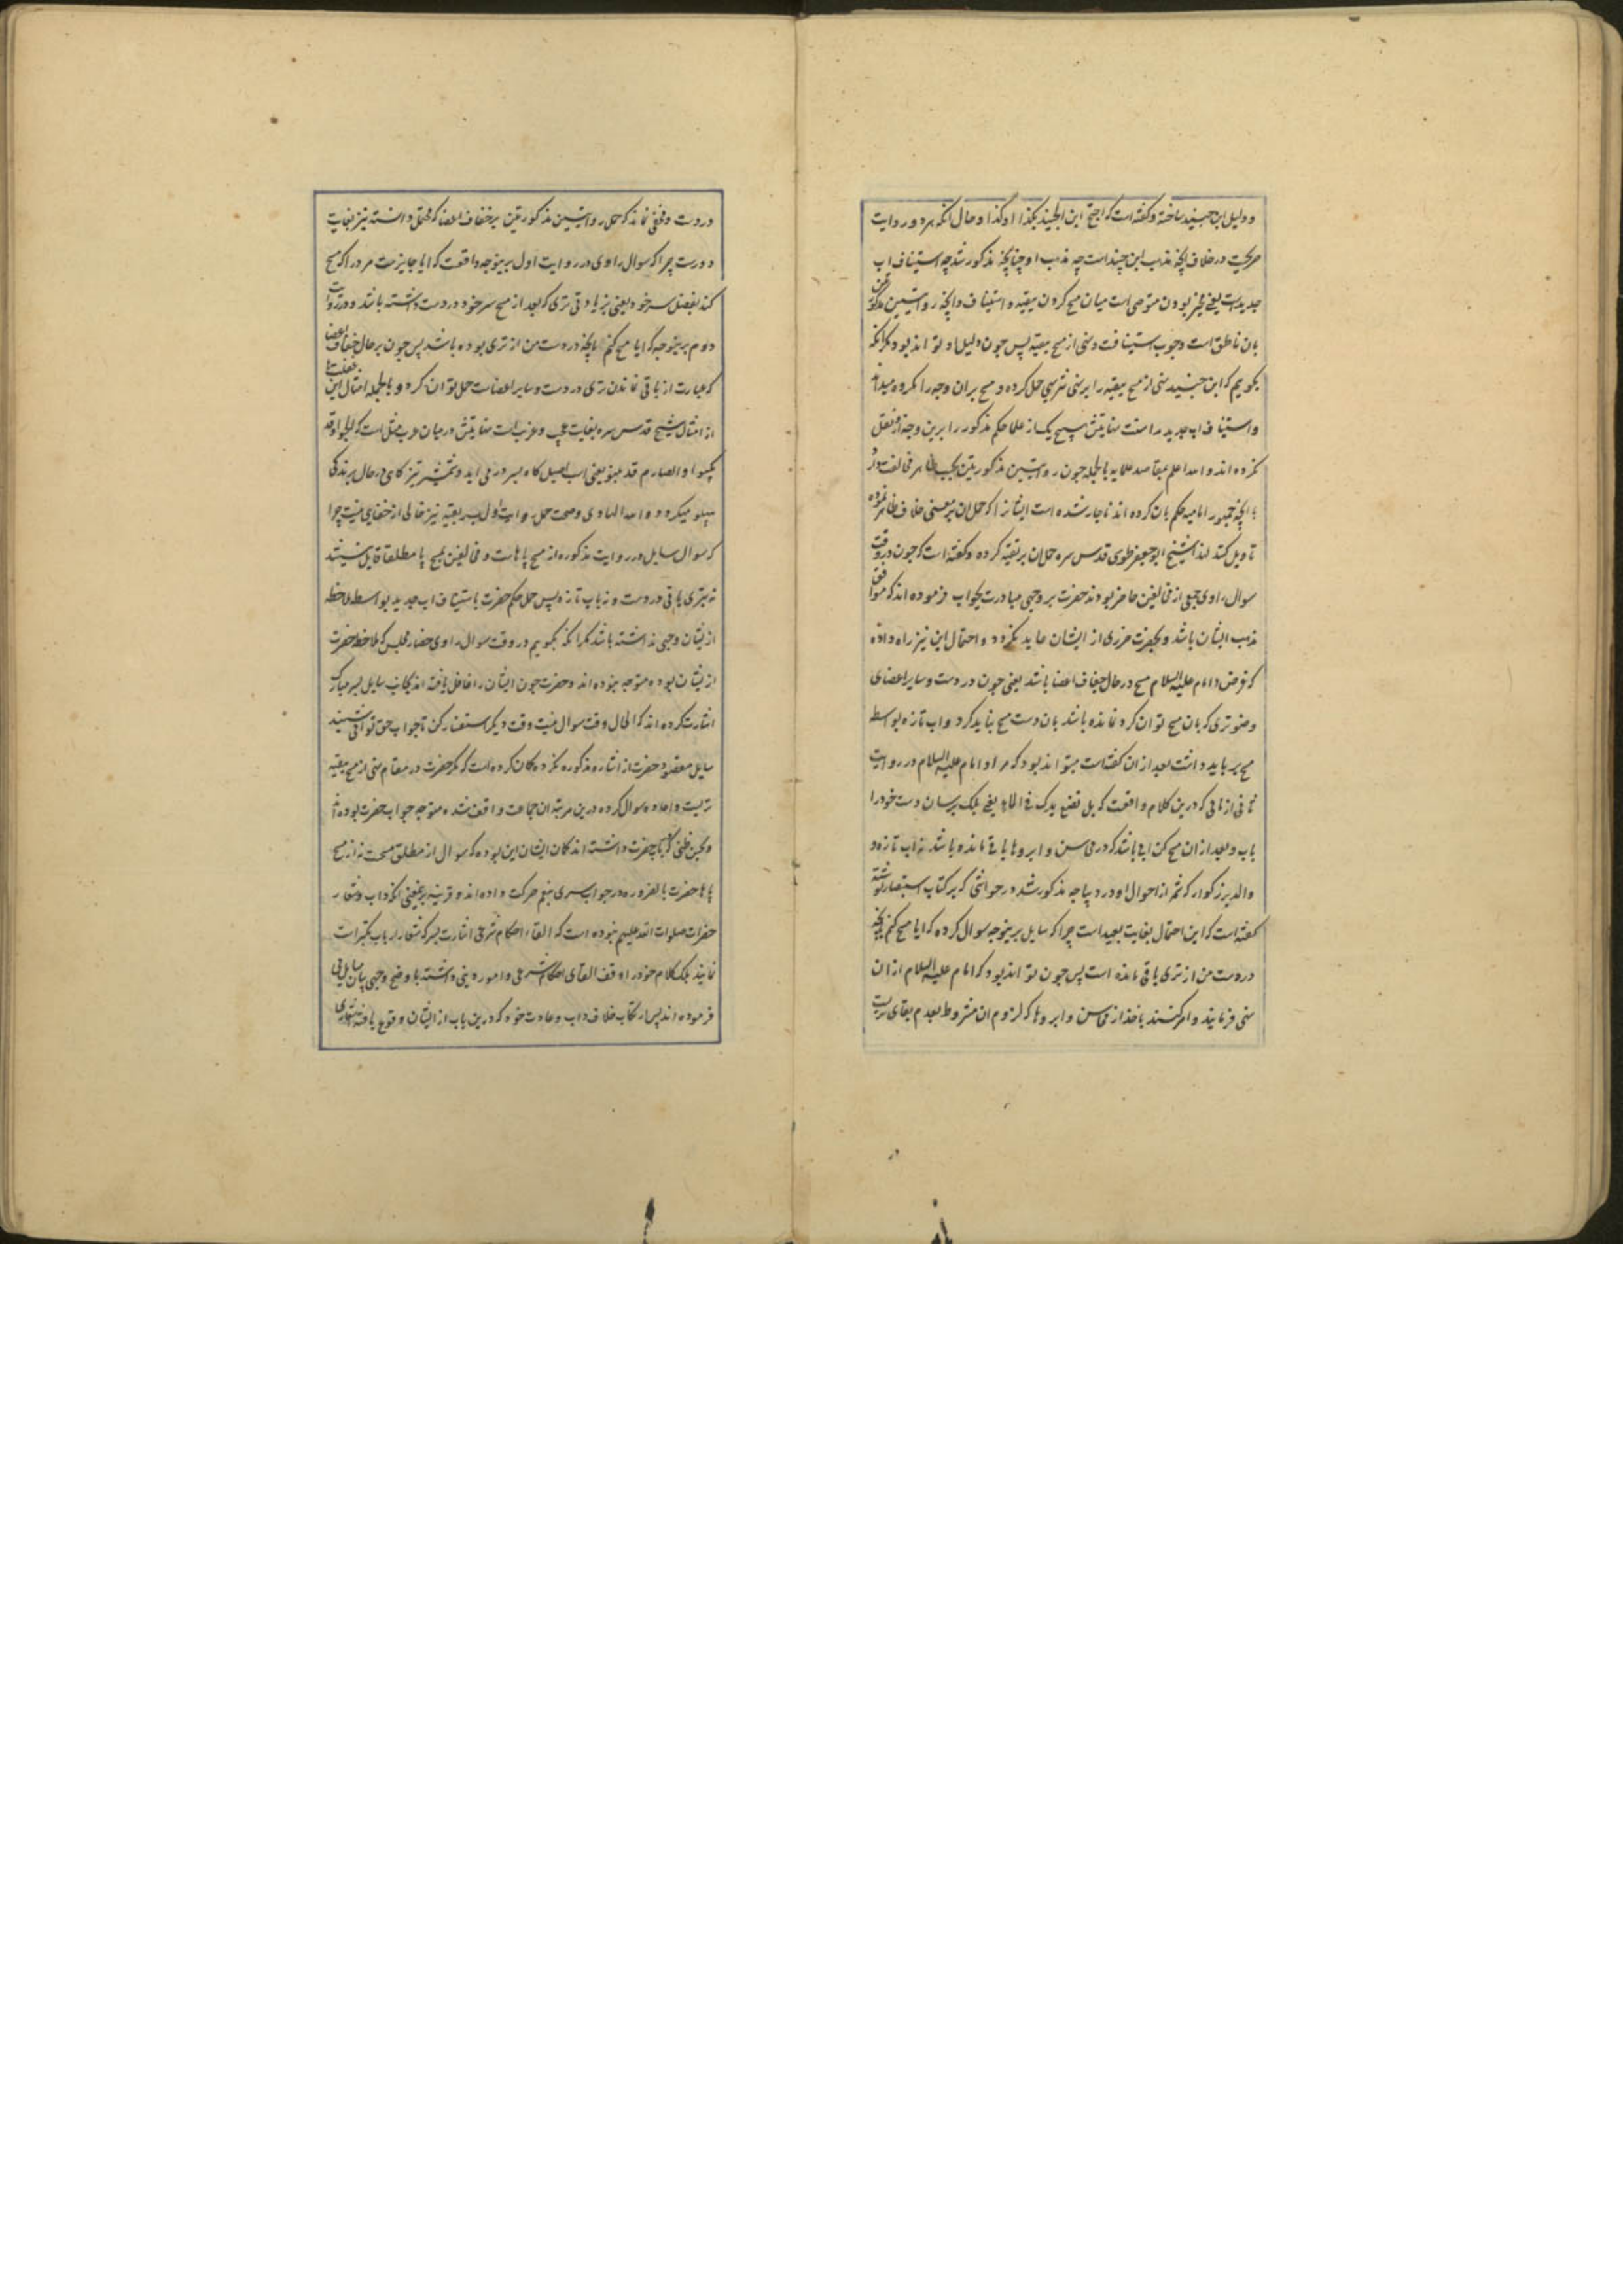 و دلیل ابن جنید ساخته و گفته است که احتج ابن الجنید بکذا او کذا و حال آنکه هر دو روایت
صریحیت در خلاف آنچه مذهب ابن جنید است چه مذهب او چنانچه مذکور شد چه استیناف آب
جدید است یعنی مخیر بودن متوضی است میان مسح کردن ببقیه و استیناف و آنچه روایتین مذکورتین
بان ناطق است وجوب استینافت و نهی از مسح ببقیه پس چون دلیل او تواند بود مگر آنکه
بگوییم که ابن جنید نهی از مسح ببقیه را بر نهی تنزیهی حمل کرده و مسح بران وجه را مکروه میداند
و استیناف آب جدید را سنت نهایتش هیچ یک از علما حکم مذکور را برین وجه ازو نقل
نکرده اند و الله اعلم بمقاصد علمایه بالجمله چون روایتین مذکورتین بحسب ظاهر مخالفت دارد
با آنچه جمهور امامیه حکم بان کرده اند ناچار شده است ایشانرا که حمل ان بر معنی خلاف ظاهر نموده
تاویل کنند لهذا شیخ ابو جعفر طوسی قدس سره حمل ان بر تقیه کرده و گفته است که چون در وقت
سوال راوی جمعی از مخالفین حاضر بودند حضرت بر وجهی مبادرت بجواب فرموده اند که موافق
مذهب ایشان باشد و بحضرت ضرری از ایشان عاید نگردد و احتمال این نیز راه داده
که غرض امام علیه السلام مسح در حال جفاف اعضا باشد یعنی چون در دست و سایر اعضای
وضو تری که بان مسح توان کرد نمانده باشد بان دست مسح نباید کرد و آب تازه بواسطه
مسح بر باید داشت بعد از ان گفته است میتواند بود که مراد امام علیه السلام در روایت
ثانی از مائی که درین کلام واقعست که بل تضع یدک فی الماء یعنی بلکه برسان دست خود را
بآب و بعد از ان مسح کن آبی باشد که در محاسن و ابروها باقی مانده باشد نه آب تازه و
والد بزرگوار که شمه از احوال او در دیباجه مذکور شد در حواشی که بر کتاب استبصار نوشته
گفته است که این احتمال بغایت بعید است چرا که سایل برینوجه سوال کرده که ایا مسح کنم بآنچه
در دست من از تری باقی مانده است پس چون تواند بود که امام علیه السلام از ان
نهی فرمایند و امر کنند باخذ از محاسن و ابروها که لزوم ان مشروط بعدم بقای تریست
در دست و مخفی نماند که حمل روایتین مذکورتین بر جفاف اعضا که محتمل دانسته نیز بغایت
دورست چرا که سوال راوی در روایت اول برینوجه واقعست که ایا جایزست مرد را که مسح
کند بفضل سر خود یعنی بزیادتی تری که بعد از مسح سر خود در دست داشته باشد و در روایت
دوم برینوجه که ایا مسح کنم بآنچه در دست من از تری بوده باشد پس چون بر حال جفاف اعضا
که عبارت از باقی نماندن تری در دست و سایر اعضاست حمل توان کرد و بالجمله امثال این غفلت ها
از امثال شیخ قدس سره بغایت عجب و غریب است نهایتش در میان عرب مثل است که الجواد قد
یکبو او الصارم قد ینبو یعنی اسب اصیل گاه بسر در می اید و شمشیر تیز گاهی در حال برندگی
پهلو میکردد و الله الهادی و صحت حمل روایت اول بر تقیه نیز خالی از خفایی نیست چرا
که سوال سایل در روایت مذکوره از مسح پاهاست و مخالفین بمسح پا مطلقا قایل نیستند
نه بتری باقی در دست و نه بآب تازه پس حمل حکم حضرت باستیناف آب جدید بواسطه ملاحظه
از ایشان وجهی نداشته باشد مگر آنکه بگوییم در وقت سوال راوی حضار مجلس که ملاحظه حضرت
از ایشان بوده متوجه نبوده اند و حضرت چون ایشان را غافل یافته اند بجانب سایل بسر مبارک
اشارت کرده اند که الحال وقت سوال نیست وقت دیگر استفسار کن تا جواب حق توانی شنید
سایل مقصود حضرت از اشاره مذکوره نکرده گمان کرده است که مگر حضرت در مقام نهی از مسح ببقیه
تریست و اعاده سوال کرده درین مرتبه ان جماعت واقف شده متوجه جواب حضرت بوده اند
و بحسن ظنی که بجناب حضرت داشته اند گمان ایشان این بوده که سوال از مطلق مسحست نه از مسح
پاها حضرت بالضروره در جواب سری بنعم حرکت داده اند و قرینه برین معنی آنکه داب و شعار
حضرات صلوات الله علیهم نبوده است که القاء احکام شرعی اشارت بسر که شعار ارباب تکبر است
نمایند بلکه کلام خود را وقف القای احکام شرعی و امور دینی داشته باوضح وجهی بیان مسایل می
فرموده اند پس ارتکاب خلاف داب و عادت خود که درین باب از ایشان وقوع یافته